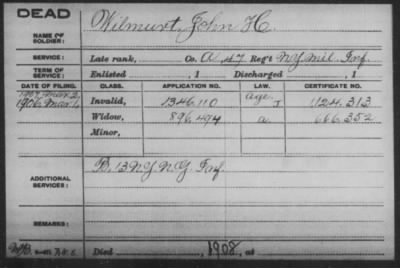 DEAD
NAME OF SOLDIER: Wilmurt, John H.
SERVICE: Late rank, Co. A 47 Reg't N.Y. Mil. Inf.
TERM OF SERVICE: Enlisted , 1 Discharged , 1
DATE OF FILING. CLASS. APPLICATION NO. LAW. CERTIFICATE NO.
1904 Mar 2 Invalid, 1346.110 age J 1124.313
1908 Mar Widow, 896.494 a. 666.352
Minor,
ADDITIONAL SERVICES: B. 13 N.Y. N.G. Inf
REMARKS:
Died , 1908, at